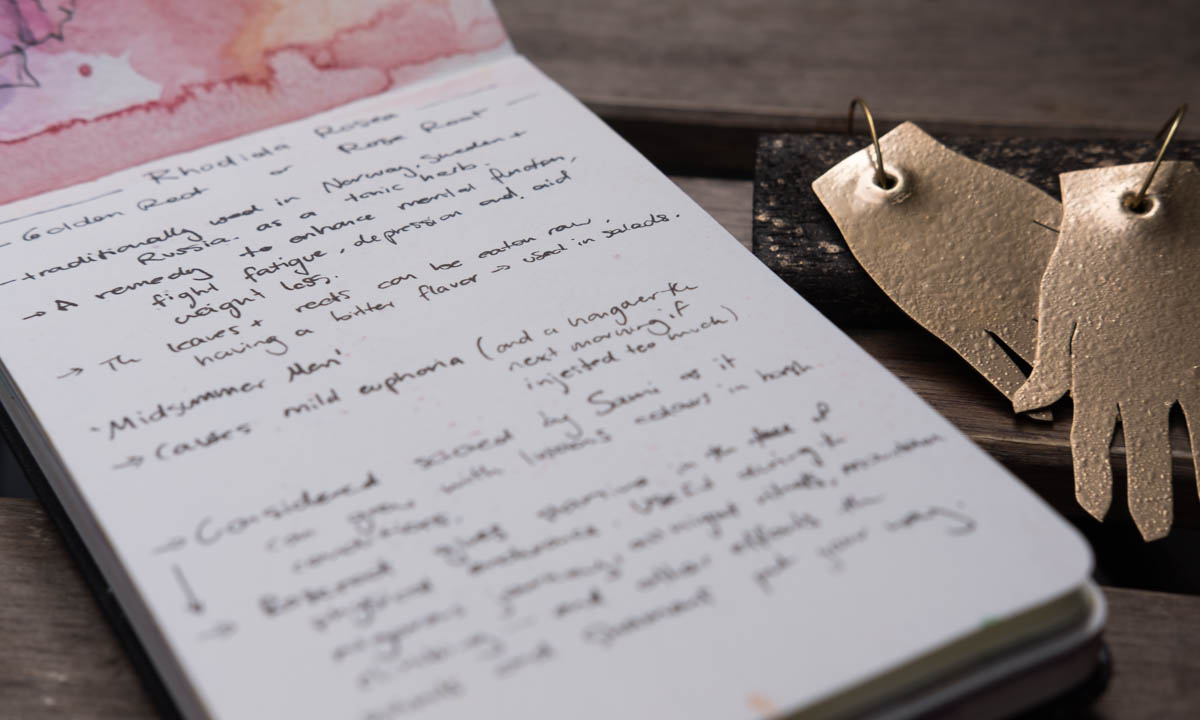 Rhodiola Rosea
- Golden Root or Rose Root
- traditionally used in Norway, Sweden +
Russia. as a tonic herb.
→ A remedy to enhance mental function,
fight fatigue, depression and aid
weight loss.
→ Th leaves + roots can be eaten raw,
having a bitter flavor → used in salads.
'Midsummer Men'
→ Causes mild euphoria (and a hangover th
next morning if
injested too much)
→ Considered sacred by Sami as it
can grow with lucious colours in harsh
conditions.
→ gives stamina in the face of
endurance. Used during th
journey, rituals,
and other efforts th
and put your way.